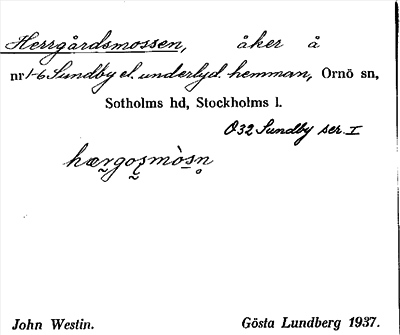 Herrgårdsmossen, åker å
nr 1-6 Sundby el. underlyd. hemman, Ornö sn,
Sotholms hd, Stockholms l.
Ö32 Sundby ser. I
hærgoʂmòsn̥
John Westin. Gösta Lundberg 1937.